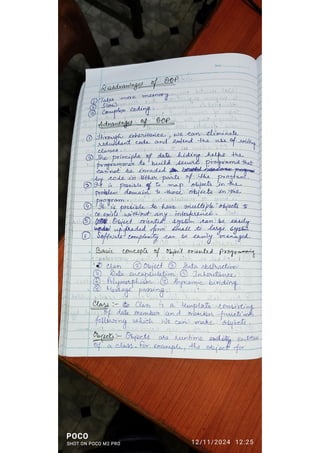 Disadvantages of OOP
① Takes more memory
② Slow
③ Complex coding
Advantages of OOP
① Through inheritance, we can eliminate
redundant code and extend the use of
classes.
② The principle of data hiding helps the
programmer to build secure programs that
cannot be invaded
by code in other parts of the program
③ It is possible to map objects in the
problem domain to those objects in the
program.
④ It is possible to have multiple objects to
co-exists without any interference.
⑤ Object oriented system can be easily
upgraded from small to large system
⑥ Software complexity can be easily managed
Basic concepts of object oriented Programming
① Class ② Object ③ Data abstraction
④ Data encapsulation ⑤ Inheritance
⑥ Polymorphism ⑦ Dynamic binding
⑧ Message passing.
Class :- Class is a template consisting
of data member and member function
following which we can make objects.
Object :- Objects are runtime entities
of a class. For example, the object for
POCO
SHOT ON POCO M2 PRO
12/11/2024 12:25